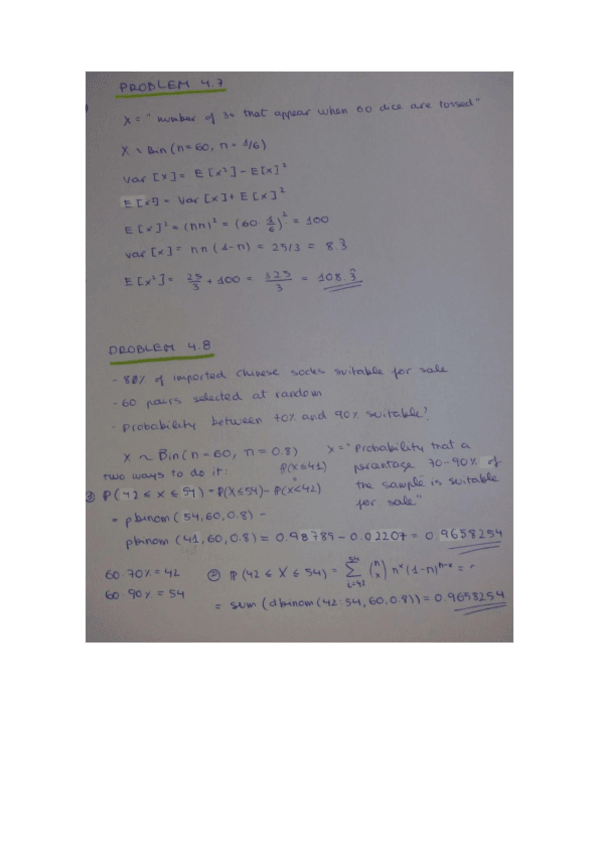 PROBLEM 4.7
X = "number of 3s that appear when 60 dice are tossed"
X ~ Bin (n = 60, π = 1/6)
Var [X] = E [X²] - E[X]²
E [X²] = Var [X] + E [X]²
E [X]² = (nπ)² = (60 · 1/6)² = 100
Var [X] = nπ (1-π) = 25/3 = 8.3
E [X²] = 25/3 + 100 = 325/3 = 108.3
PROBLEM 4.8
- 80% of imported chinese socks suitable for sale
- 60 pairs selected at random
- Probability between 70% and 90% suitable?
X ~ Bin (n = 60, π = 0.8) X = "Probability that a
two ways to do it: P(X≤41) percentage 70-90% of
① P(42 ≤ X ≤ 54) = P(X≤54) - P(X<42) the sample is suitable
= pbinom (54,60,0.8) - for sale"
pbinom (41,60,0.8) = 0.98785 - 0.02207 = 0.9658254
60·70% = 42 ② P (42 ≤ X ≤ 54) = 54 Σ i=42 (n x) π^x (1-π)^n-x =
60·90% = 54
= sum (dbinom (42:54, 60, 0.8)) = 0.9658254